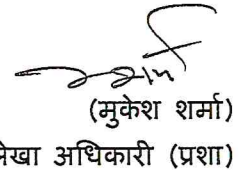 (मुकेश शर्मा)
लेखा अधिकारी (प्रशा)